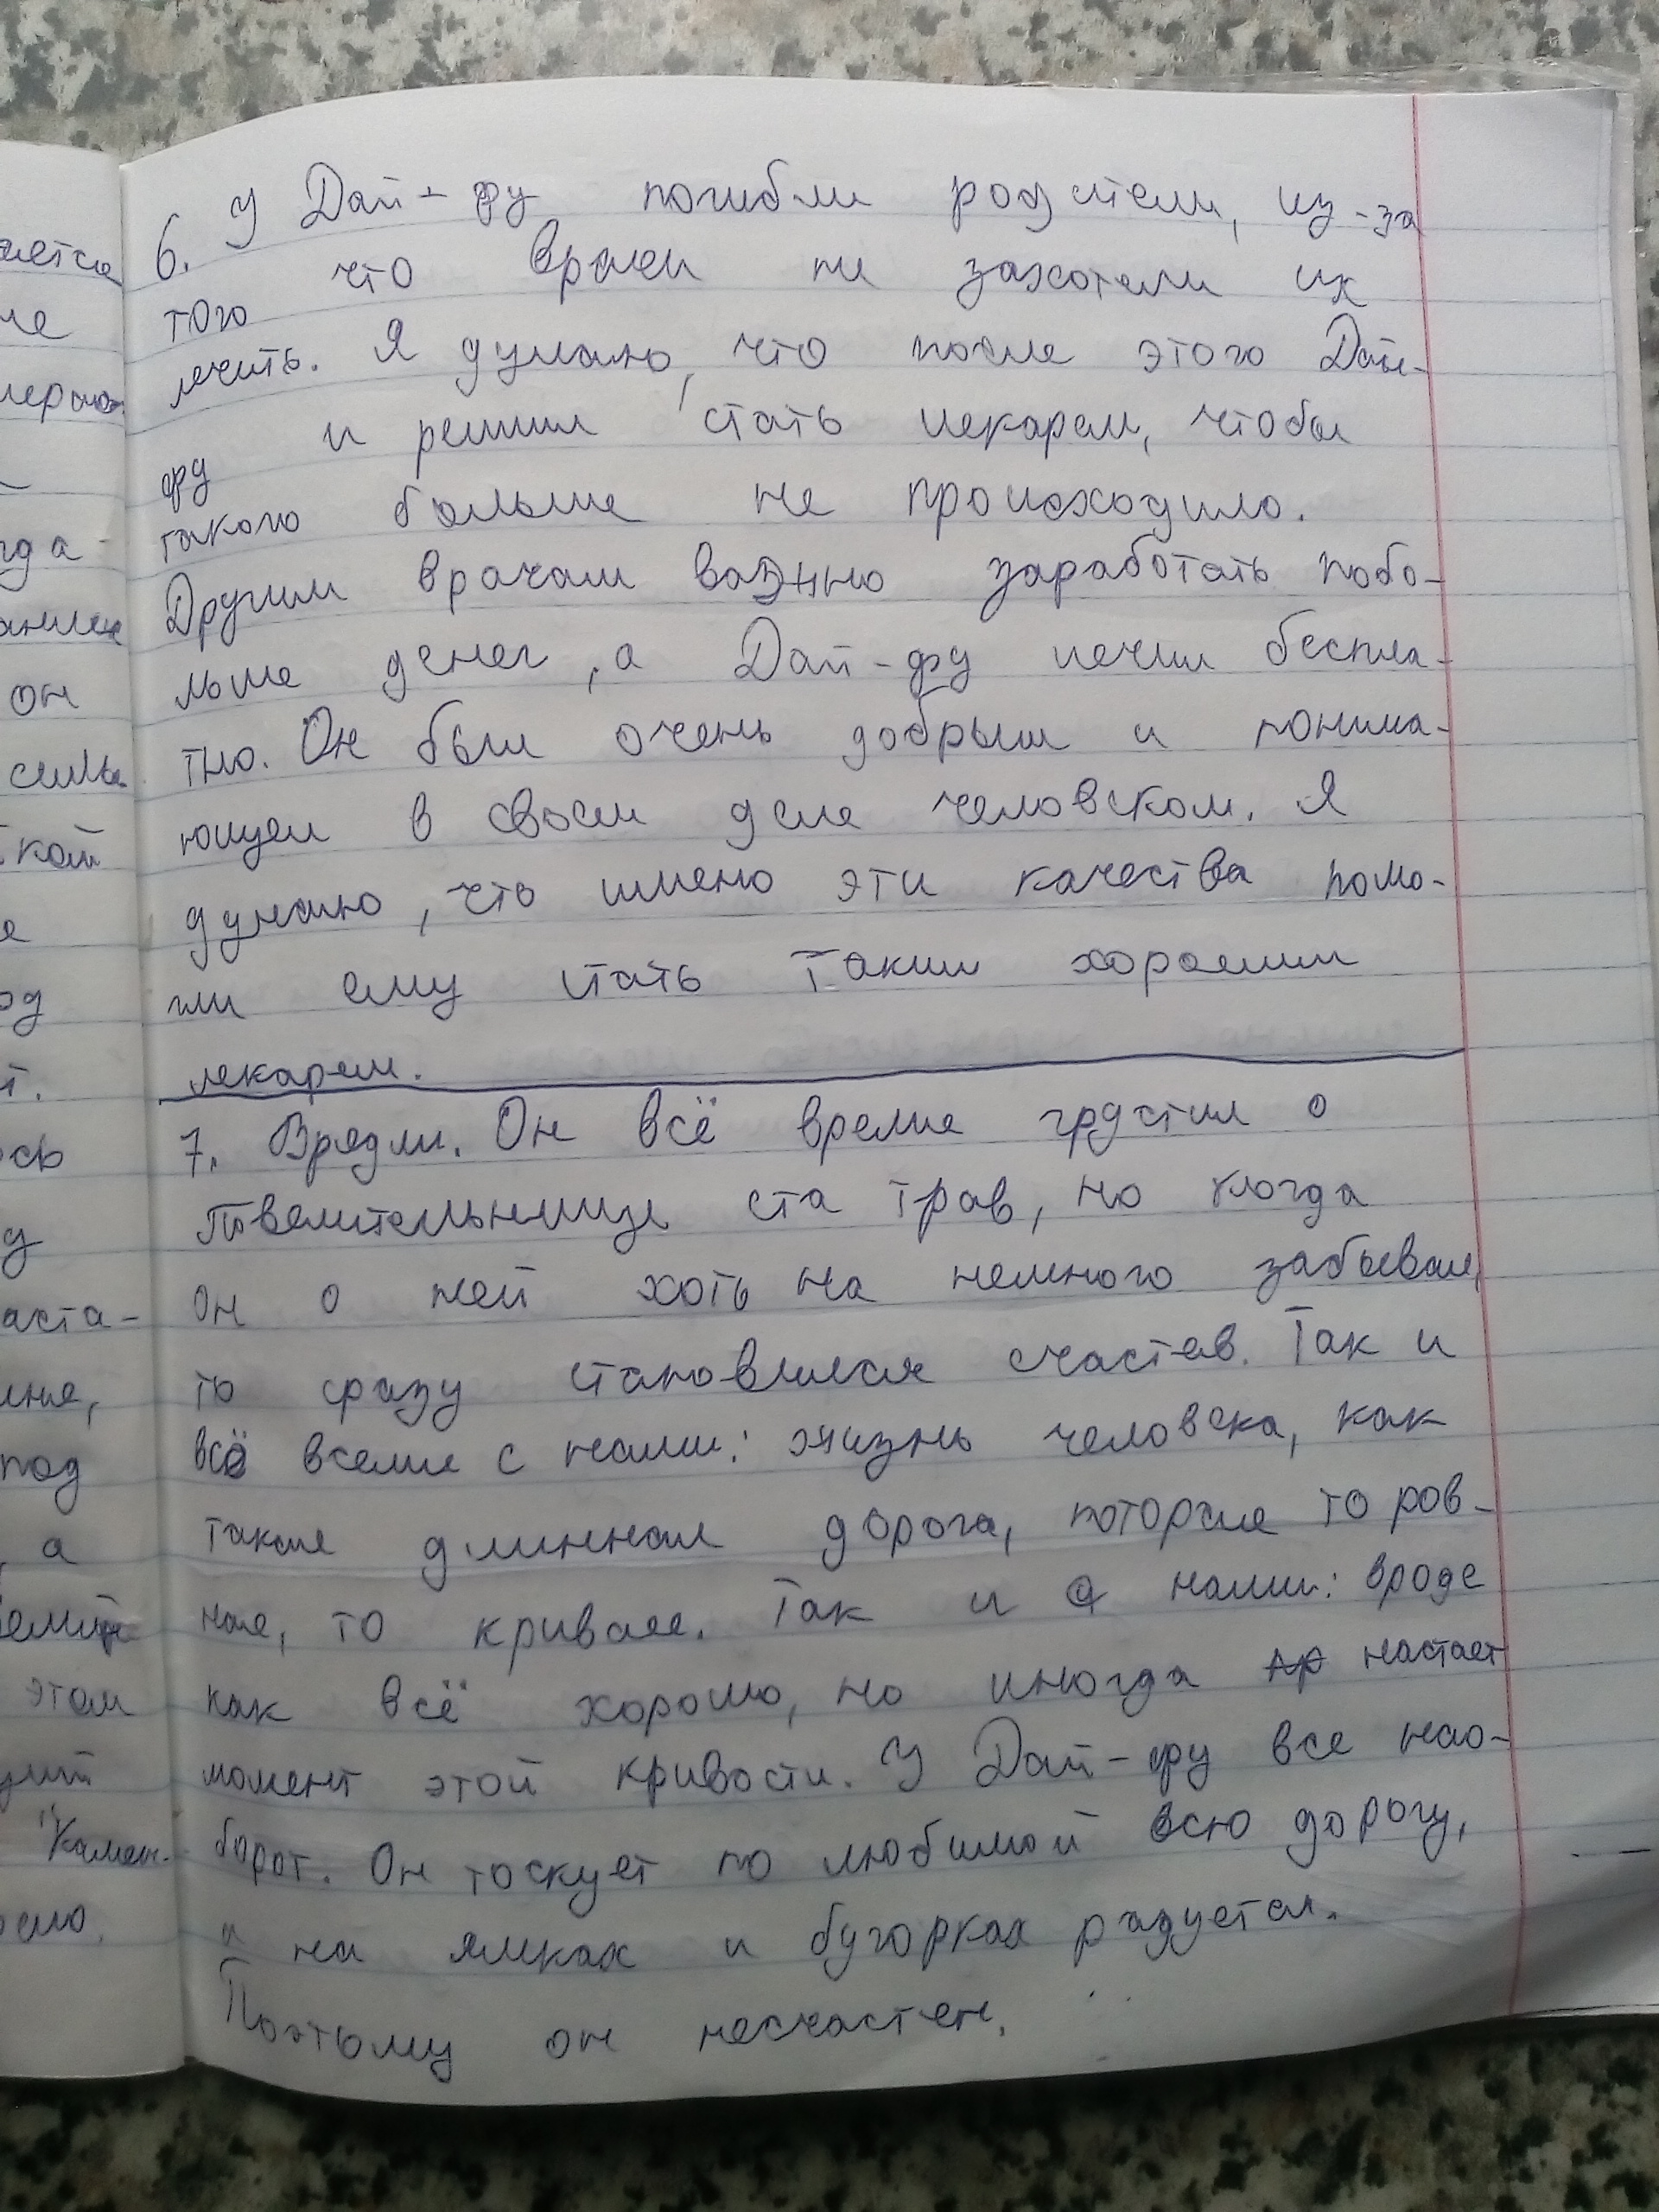 6. У Дай-фу погибли родители, из-за
того что врачи не захотели их
лечить. Я думаю, что после этого Дай-
фу и решил стать лекарем, чтобы
такого больше не происходило.
Другим врачам важно заработать побо-
льше денег, а Дай-фу лечил беспла-
тно. Он был очень добрым и понима-
ющем в своем деле человеком. Я
думаю, что имено эти качества помо-
гли ему стать таким хорошим
лекарем.
7. Врядли. Он всё время грустил о
Повелительнице ста трав, но когда
он о ней хоть на немного забывал,
то сразу становился счастлив. Так и
всё с нами: жизнь человека, как
такая длинная дорога, которая то ров-
ная, то кривая. Так и с нами: вроде
как всё хорошо, но иногда настает
момент этой кривости. У Дай-фу все нао-
борот. Он тоскует по любимой всю дорогу,
и на ямках и бугорках радуется.
Поэтому он несчастен.
ается
гда
он
аста-
под
а
этом
"Камен-